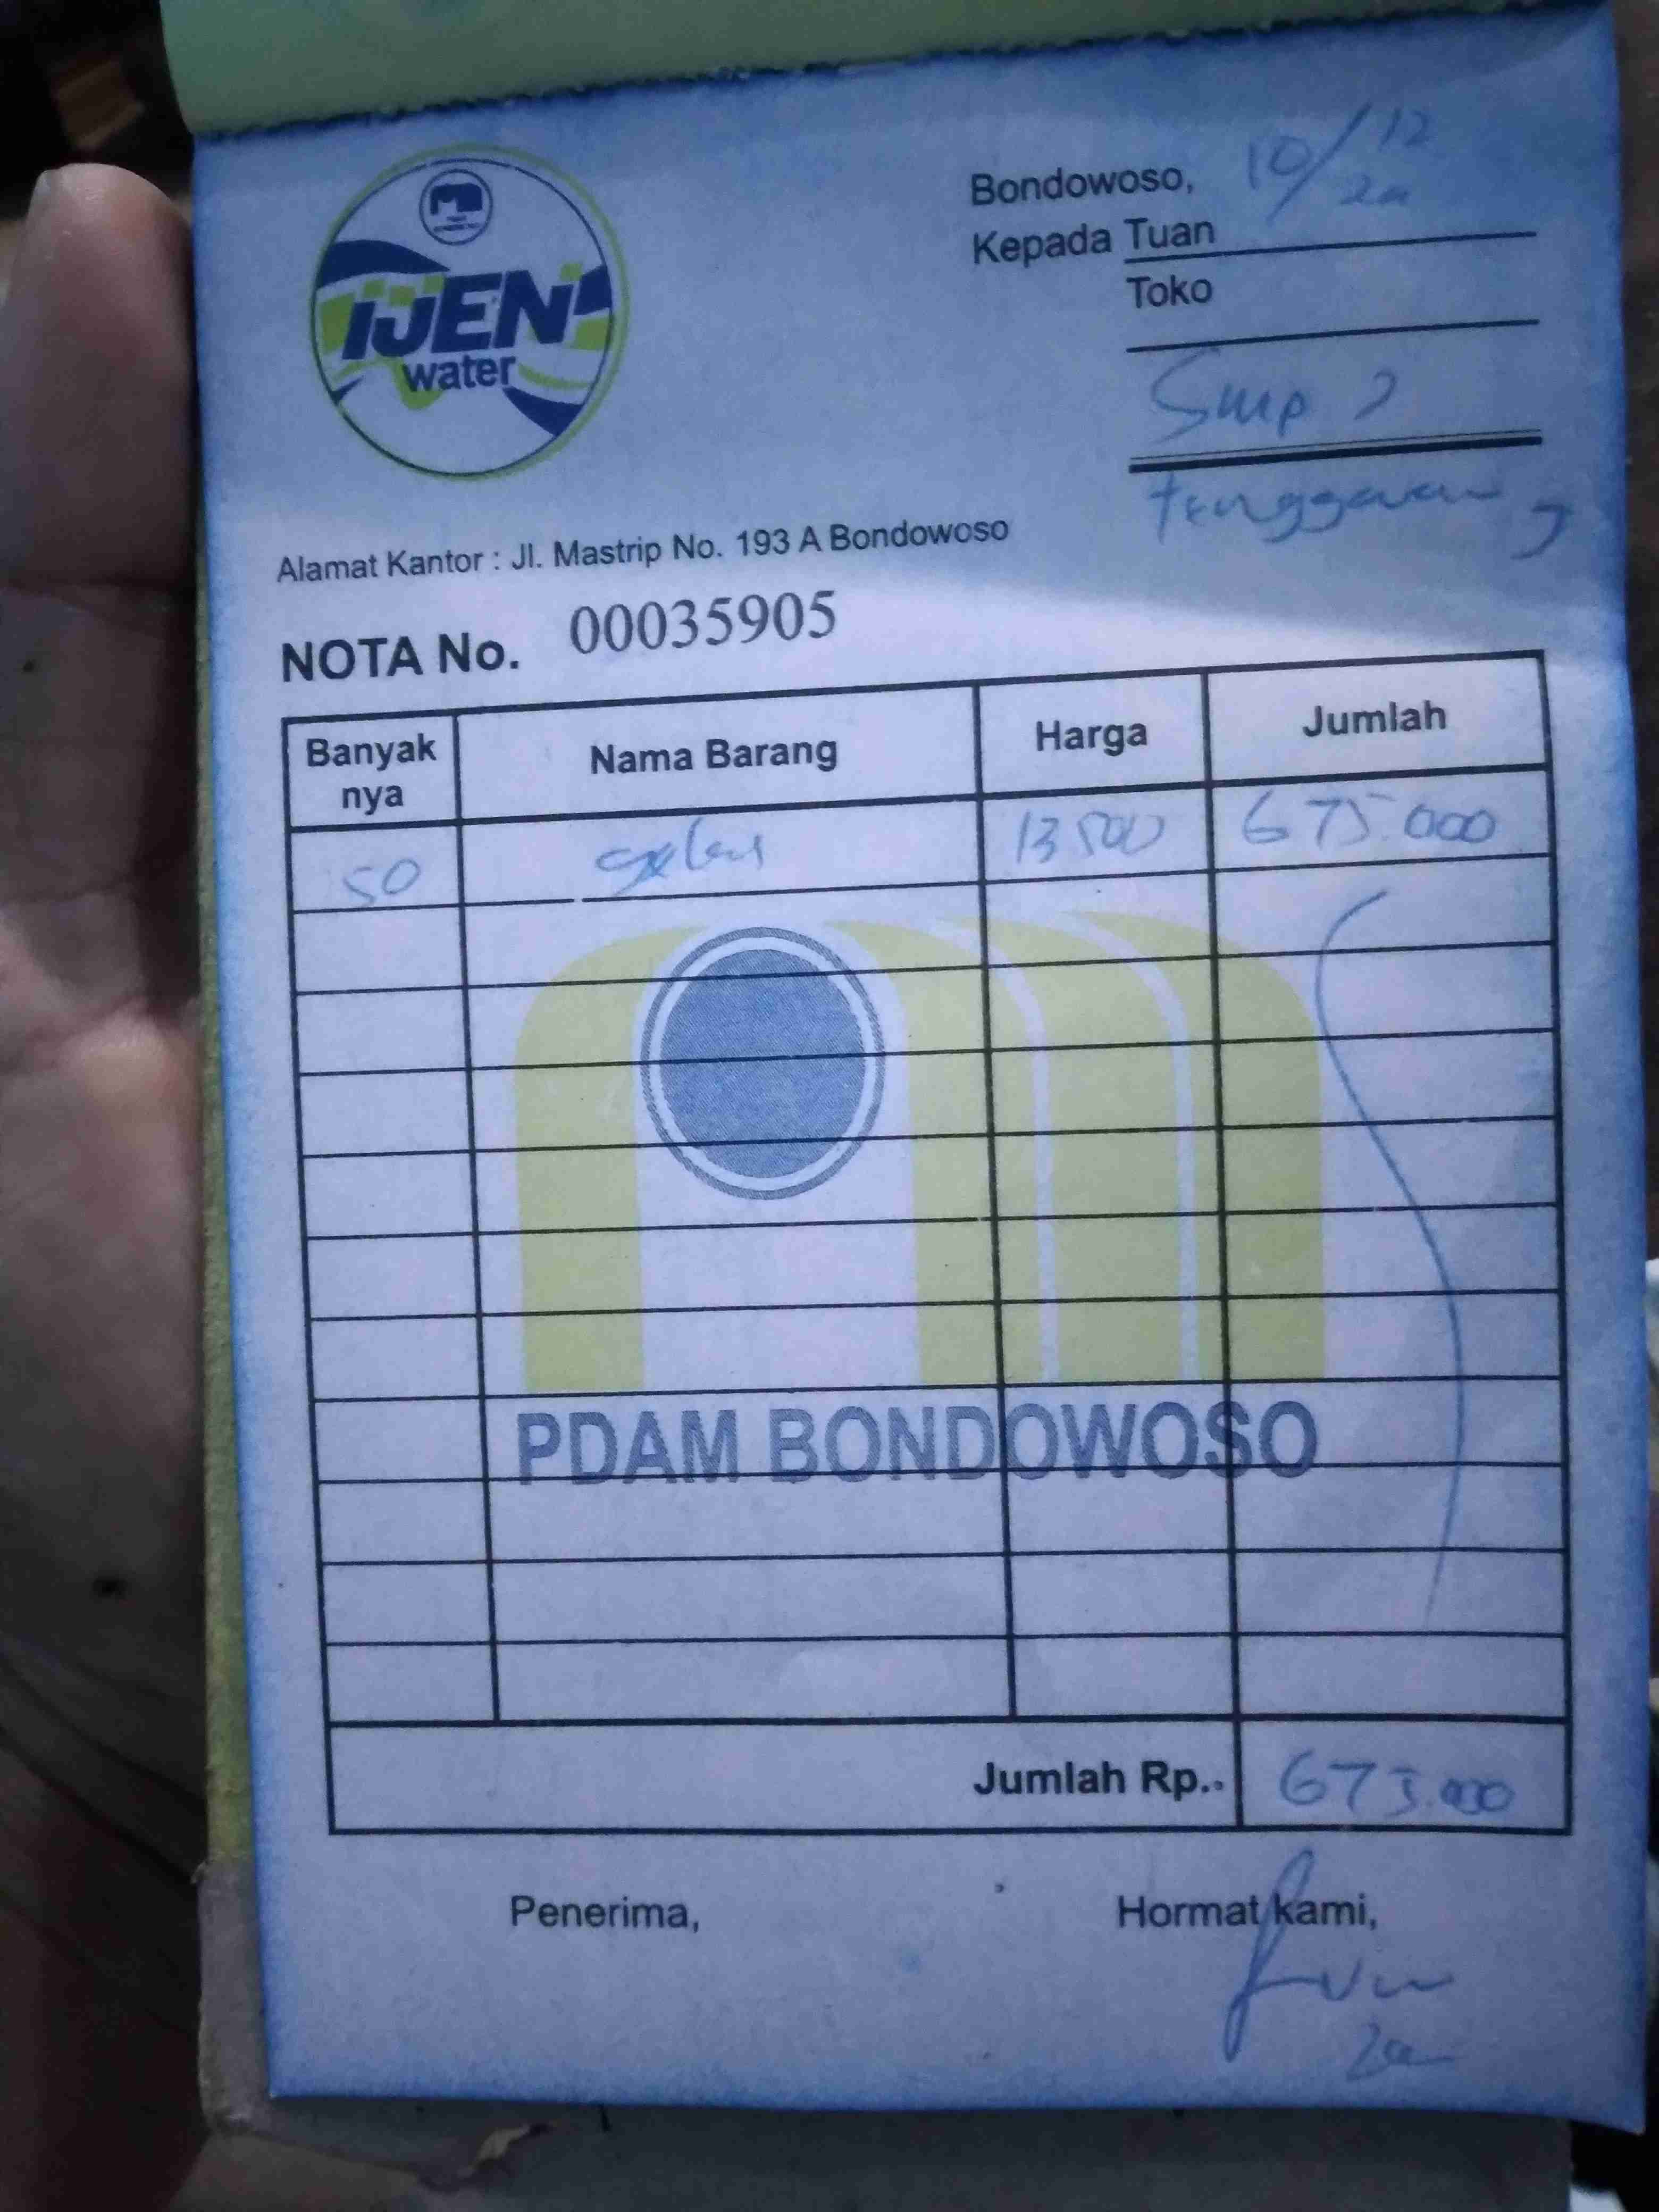 IJEN
water
Bondowoso, 10/12
Kepada Tuan
Toko
Smp 2
Tenggarang
Alamat Kantor : Jl. Mastrip No. 193 A Bondowoso
NOTA No. 00035905
Banyak nya Nama Barang Harga Jumlah
50 13.500 675.000
PDAM BONDOWOSO
Jumlah Rp.. 675.000
Penerima, Hormat kami,